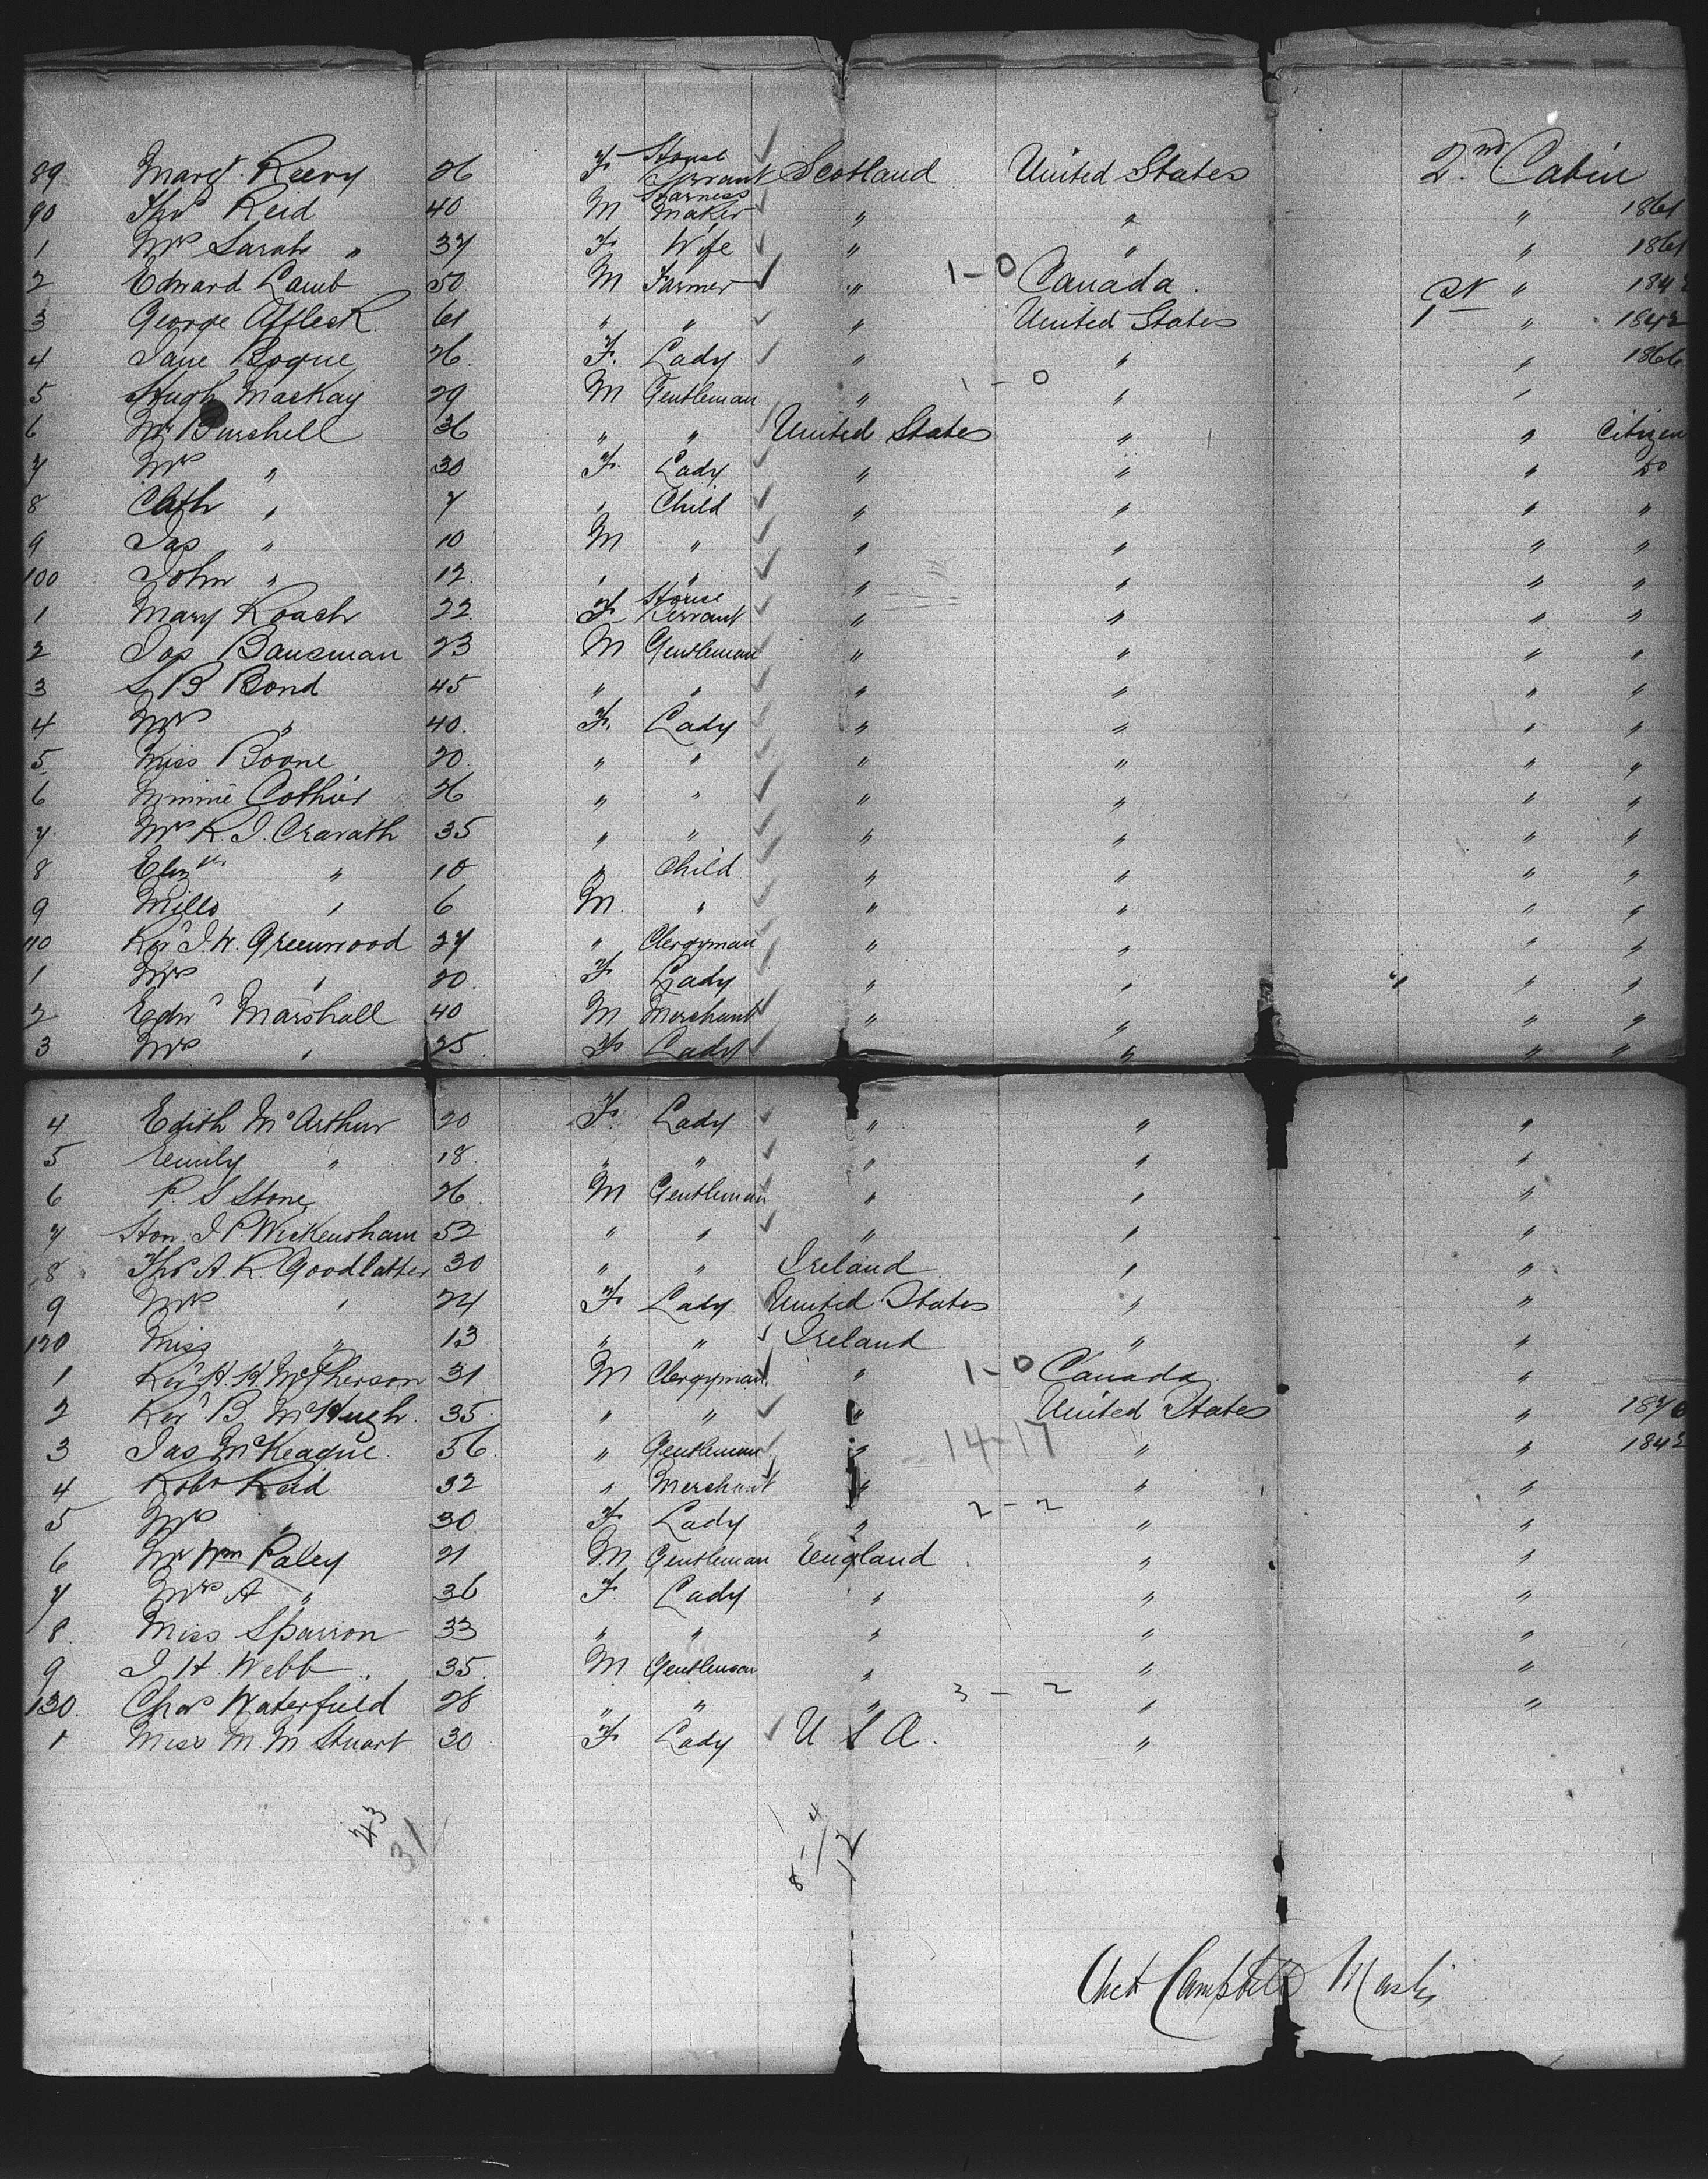 89 Margt. Reevy 26 F House Servant Scotland United States 2nd Cabin
90 Thos Reid 40 M Harness Maker " " " 1861
1 Mrs Sarah " 37 F Wife " " " 1861
2 Edward Lamb 50 M Farmer " 1-0 Canada. "
3 George Affleck 61 " " " United States 1st " 1842
4 Jane Bogue 26. F. Lady " " " 1866
5 Hugh Mackay 29 M Gentleman " 1-0 " "
6 Mr Burchell 36 " " United States " " Citizen
7 Mrs " 30 F. Lady " " " Do
8 Cath " 7 " Child " " " "
9 Jas " 10 M " " " " "
100 John " 12. " " " " " "
1 Mary Roach 22. F House Servant " " " "
2 Jos Bausman 23 M Gentleman " " " "
3 S. B Bond 45 " " " " " "
4 Mrs " 40. F. Lady " " " "
5. Miss Boone 20. " " " " " "
6 Minnie 26 " " " " " "
7 Mrs R. J. Cravath 35 " " " " " "
8 Elizth " 10 " Child " " " "
9 Mills " 6 M. " " " " "
110 Revd J. W. Greenwood 27 " Clergyman " " " "
1 Mrs " 20. F Lady " " " "
2 Edwd Marshall 40 M Merchant " " " "
3 Mrs " 25. F Lady " " " "
4 Edith McArthur 20 F. Lady " " "
5 Emily " 18. " " " " "
6 P. S Stone 26. M Gentleman " " "
7 Hon. J. P. Wickersham 52 " " " " "
8 Thos A. R. Goodlatter 30 " " Ireland " "
9 Mrs " 24 F Lady United States " "
120 Miss " 13 " " Ireland " "
1 Revd H. H. McPherson 31 M Clergyman " 1-0 Canada. "
2 Revd B. McHugh. 35. " " " United States " 1876
3 Jas McKeague. 56. " Gentleman " 14-17 " "
4 Robt Reid 32 " Merchant " " "
5 Mrs " 30. F. Lady " 2-2 " "
6 Mr Wm Paley 21 M Gentleman England. " "
7 Mrs A " 36 F. Lady " " "
8. Miss Sparron 33 " " " " "
9 J. H. Webb 35. M Gentleman " " "
130. Chas Waterfield 28 " " " 3-2 " "
1 Miss M. M Stuart 30 F Lady U S A. "
43
31
Campbell Master